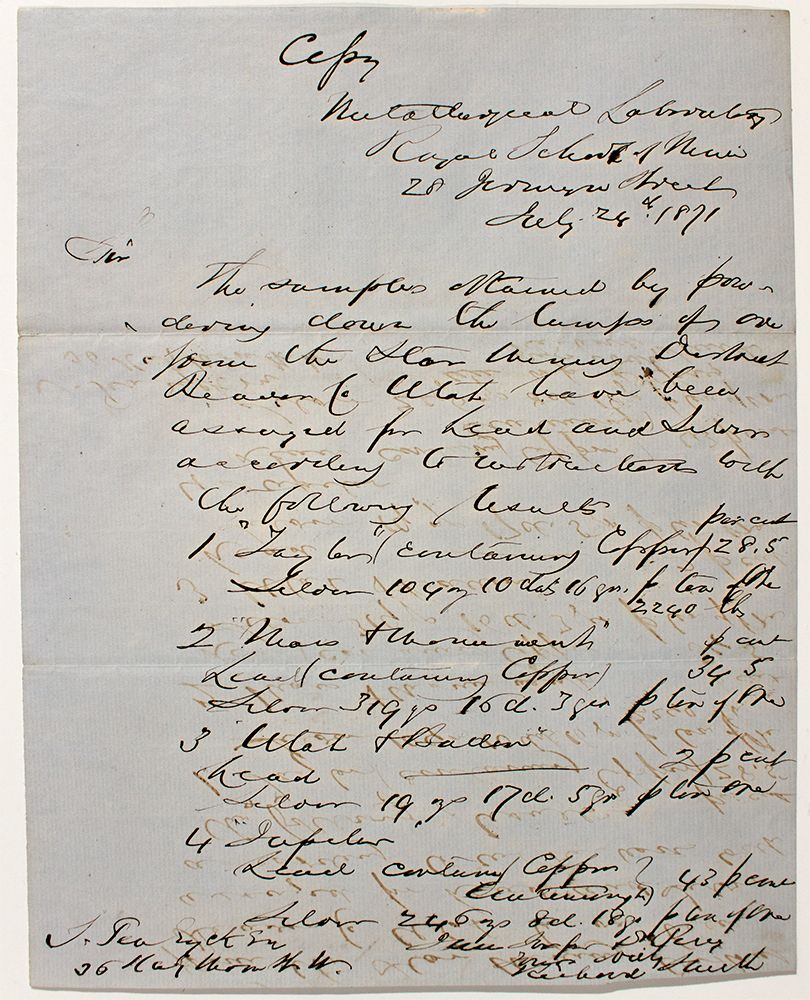 Copy
Metallurgical Laboratory
Royal School of Mines
28 Jermyn Street
July 24th 1871
Sir
The samples obtained by pow-
dering down the lumps of ore
from the Star Mining District
Beaver Co Utah have been
assayed for Lead and Silver
according to instructions with
the following results
per cent
1 "Taylor" (containing Copper) 28.5
Silver 104 oz 10 dwts 16 grs. p ton of Ore
2240 lbs
2 Mars & Monument" p cent
Lead (containing Copper) 34 5
Silver 319 oz 16 d. 3 grs p ton of Ore
3 "Utah & Baden"
Lead 2 p cent
Silver 19 oz 17 d. 5 gr p ton Ore
4 "Jupiter"
Lead containg Copper
43 p cent
Silver 246 oz 8 d. 18 gr p ton of Ore
Dr Percy
S. Ten Eyck
yours truly
36 Hay
Richard Smith